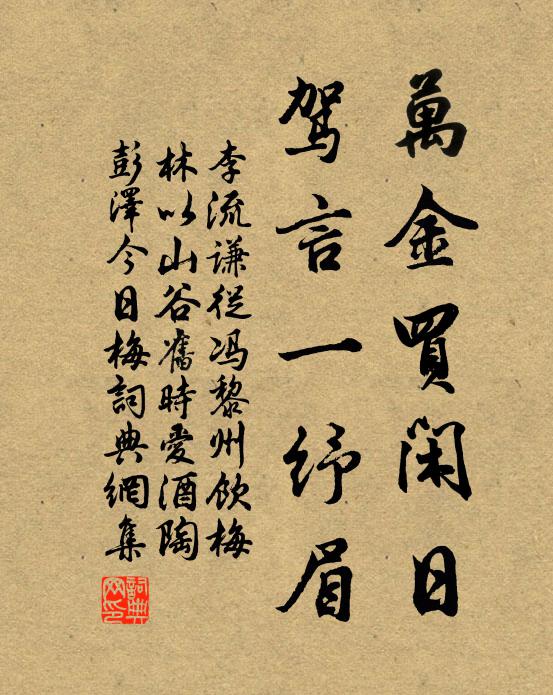 萬金買閑日
駕言一纾眉
李流謙從冯黎州飲梅
林以山谷舊時愛酒陶
彭澤今日梅詞典網集
詞典
网印